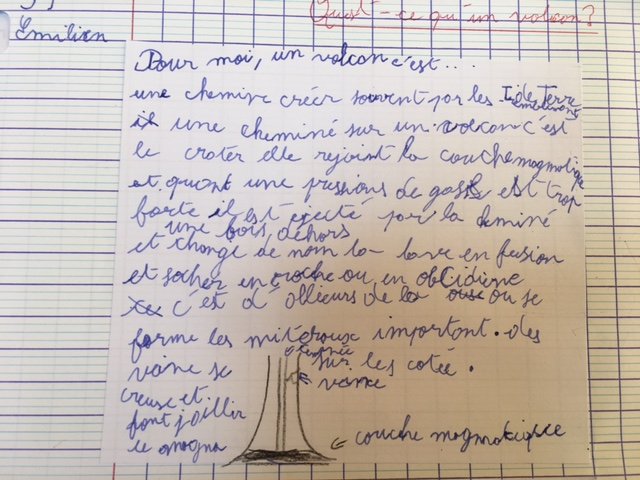 Qu'est-ce qu'un volcan?
Emilien
Pour moi, un volcan c'est....
une cheminé créer souvent par les
de Terre
une cheminé sur un volcan c'est
le crater elle rejoint la couche magmatique
et quant une pressions de gass est trop
forte il est éjecté par la cheminé
une fois dehors
et change de nom la lave en fusion
et sécher en roche ou en obcidiene
c'est d'ollieurs de la ou se
forme les minéraux important. des
vaine se sur les cotée.
creuse et vaine
font jaillir
le magma
← couche magmatique